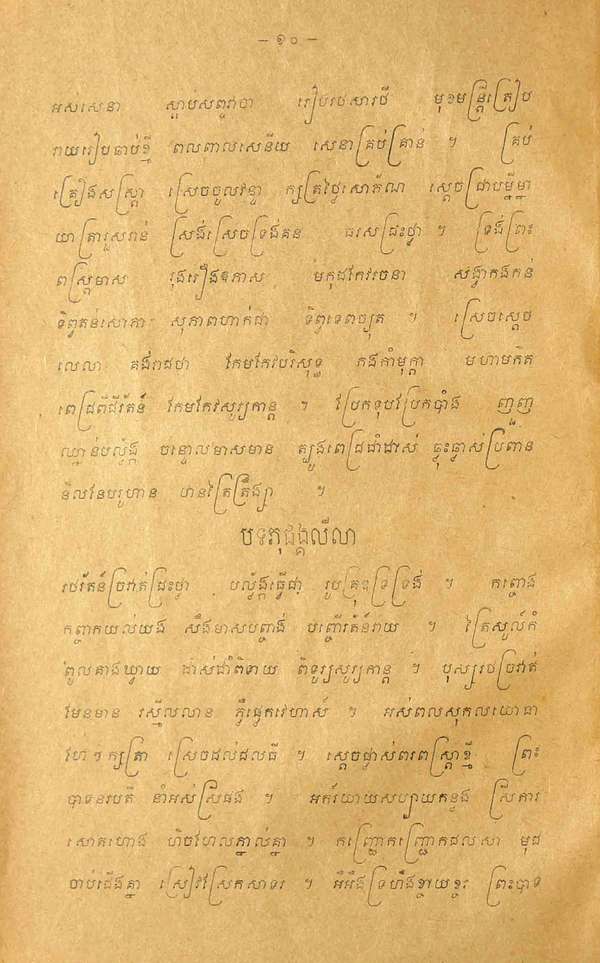 – ១០ –
អស់សេនា ស្តាប់សព្វវាចា រៀបរថសារថី មុខមន្ត្រីត្រៀប
រាយរៀបចាប់ខ្មី ពលពាលសេនីយ សេនាគ្រប់គ្រាន់ ។ គ្រប់
គ្រឿងសស្ត្រា ស្រេចចូលវន្ទា ក្សត្រថ្លៃសោភ័ណ ស្តេចជ្រាបម្នីម្នា
យាត្រារួសរាន់ ស្រង់ស្រេចទ្រង់គន ធរសជ្រះថ្លា ។ ទ្រង់ព្រះ
ពស្ត្រមាស រុងរឿងឱភាស មកុដកែវរចនា សង្វាកងកន់
ទិព្វតនសោភា សុភាពហាក់ជា ទិព្វទេពច្យុត ។ ស្រេចស្តេច
លេលា គង់រាជថា កែមកែវបរិសុទ្ធ កងកាំមុក្តា មហាមកិត
ពេជ្រពិជីរ័តន៍ កែមកែវសូរ្យកាន្ត ។ វ៉ប្រែកទុបវ៉ប្រែកបាំង ញញួញ
ឈ្នាន់បល្ល័ង្ក ចន្ទោលមាសមាន ត្បូងពេជ្រជាំដាស់ ធ្លុះធ្លាស់ប្រពាន
និលនែបរូហាន ឋានត្រៃត្រឹង្ស្យា ។
បទភុជង្គលីលា
រថរ័តន៍ច្រវាត់ជ្រះថ្លា បល្ល័ង្កធ្វើជា រូបគ្រុឌទ្រទ្រង់ ។ កញ្ចោង
កញ្ចាកយល់យង សឹងមាសបញ្ចង់ បញ្ចើរតន៍រាយ ។ ត្រៃសូល៍កំ
ពូលនាងឃ្វាយ ដាស់ជាំពិទាយ ពិទូរ្យសូរ្យកាន្ត ។ បុស្បរថច្រវាត់
មែនមាន រស្មីលលាន ភ្លឺផ្ទេកវេហាស៍ ។ អស់ពលសុកលយោធា
ហែ ៗ ក្សត្រា ស្រេចដល់ជលធី ។ ស្តេចផ្លាស់ពរពស្ត្រាខ្មី ព្រះ
បាទនរបតី នាំអស់ស្រីផង ។ អភរិយាយសប្បាយកន្លង ស្រីការ
សោតហោង ហិចហែលភ្នាល់គ្នា ។ កញ្ជ្រោកញ្ជ្រោកជលសា មុជ
ចាប់ជើងគ្នា ស្រៀវវ៉ស្រែកសាទរ ។ អឺអឹងទ្រហឹងខ្ចាយខ្ចរ ព្រះបាទ